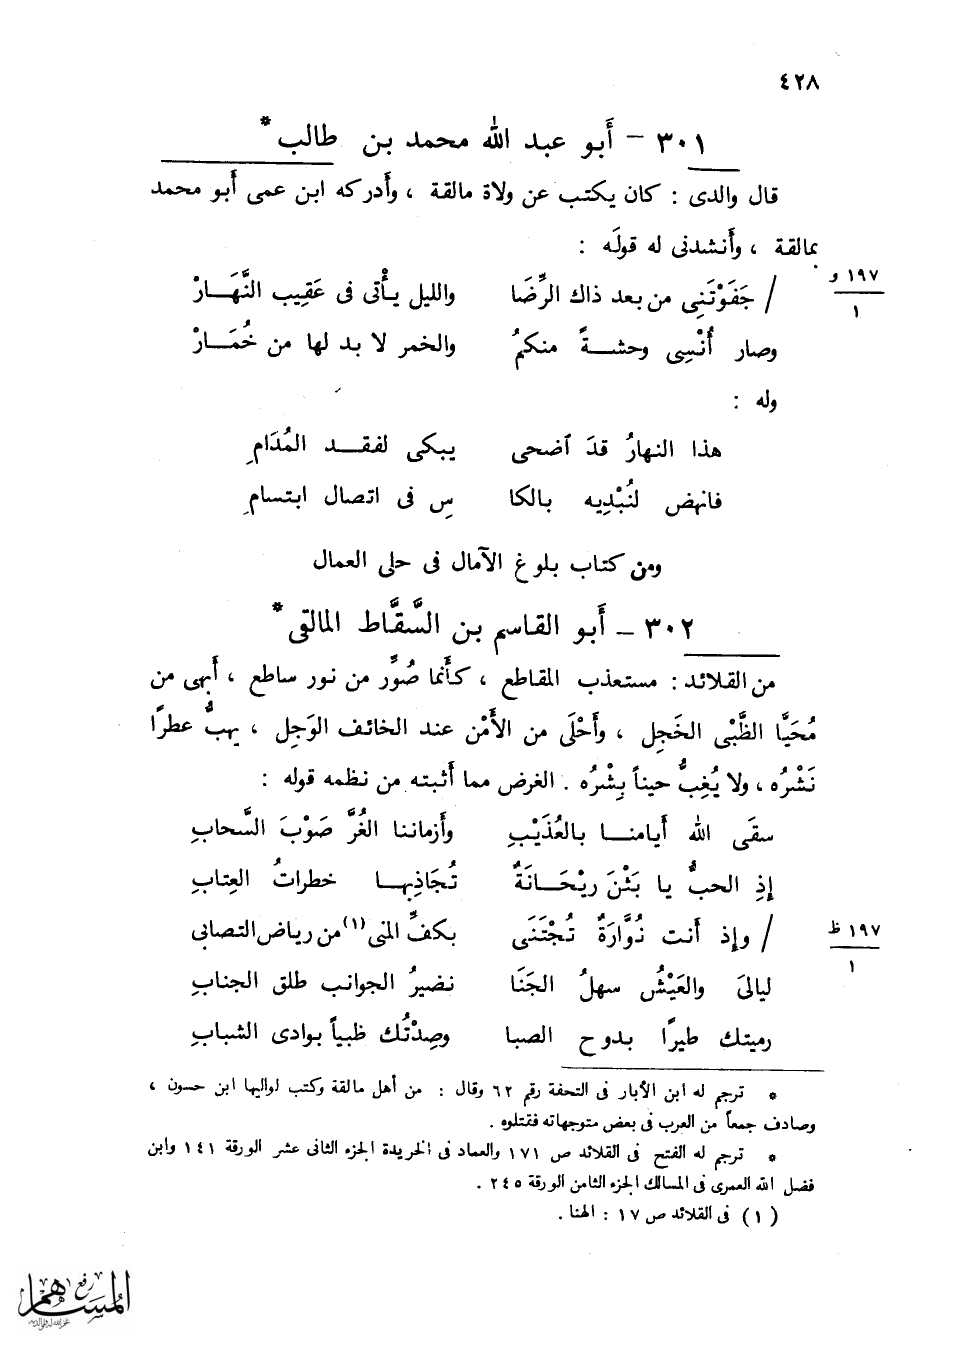 ٤٢٨
٣٠١ – أَبو عبد الله محمد بن طالب *
قال والدى : كان يكتب عن ولاة مالقة ، وأَدركه ابن عمى أَبو محمد
بمالقة ، وأَنشدنى له قولَه :
/ جَفَوْتَنِى من بعد ذاك الرِّضَا والليل يأْتى فى عَقِيب النَّهَارْ
١٩٧ و
١
وصار أُنْسِى وحشةً منكمُ والخمر لا بد لها من خُمَارْ
وله :
هذا النهارُ قدَ اَضحى يبكى لفقد المُدَامِ
فانهض لنُبْدِيه بالكا سِ فى اتصال ابتسامِ
ومن كتاب بلوغ الآمال فى حلى العمال
٣٠٢ – أَبو القاسم بن السَّقَّاط المالقى *
من القلائد : مستعذب المقاطع ، كأَنما صُوِّر من نور ساطع ، أَبهى من
مُحَيَّا الظَّبْى الخَجِل ، وأَحْلَى من الأَمْن عند الخائف الوَجِل ، يهبُّ عطرًا
نَشْرُه ، ولا يُغِبُّ حيناً بِشْرُه . الغرض مما أَثبته من نظمه قوله :
سقَى الله أَيامنا بالعُذَيْبِ وأَزماننا الغُرَّ صَوْبَ السَّحابِ
إذِ الحبُّ يا بَثْنَ ريْحَانَةٌ تُجَاذِبها خطراتُ العِتابِ
/ وإذ أَنت نُوَّارَةٌ تُجْتَنَى بكفِّ المنى (١) من رياض التصابى
١٩٧ ظ
١
ليالىَ والعَيْشُ سهلُ الجَنَا نضيرُ الجوانب طلق الجنابِ
رميتك طيرًا بدوح الصبا وصِدْتُك ظبياً بوادى الشبابِ
* ترجم له ابن الأبار فى التحفة رقم ٦٢ وقال : من أهل مالقة وكتب لواليها ابن حسون ،
وصادف جمعاً من العرب فى بعض متوجهاته فقتلوه .
* ترجم له الفتح فى القلائد ص ١٧١ والعماد فى الخريدة الجزء الثانى عشر الورقة ١٤١ وابن
فضل الله العمرى فى المسالك الجزء الثامن الورقة ٢٤٥ .
(١) فى القلائد ص ١٧ : الهنا .
رفع
المساهم